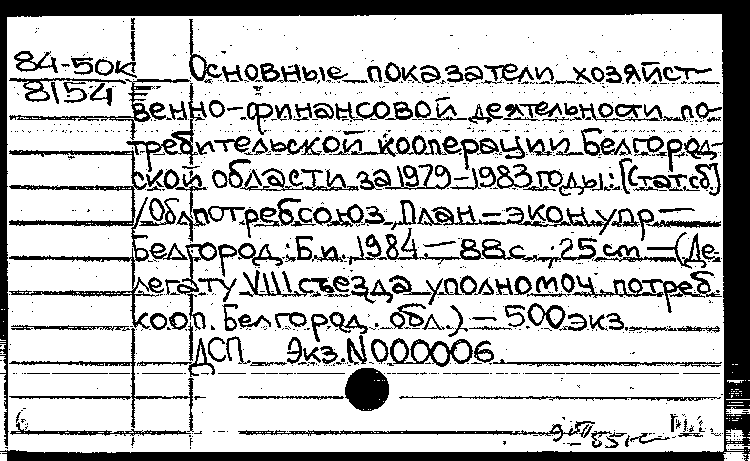 84-50к Основные показатели хозяйст-
8154 венно-финансовой деятельности по-
требительской кооперации Белгород-
ской области за 1979-1983 годы: [Стат.сб.]
/Облпотребсоюз, План.-экон. упр.—
Белгород: Б.и., 1984.— 88 с.; 25 cm — (Де-
легату VIII съезда уполномоч. потреб.
кооп. Белгород. обл.) — 500 экз
ДСП. Экз. N 000006.
6